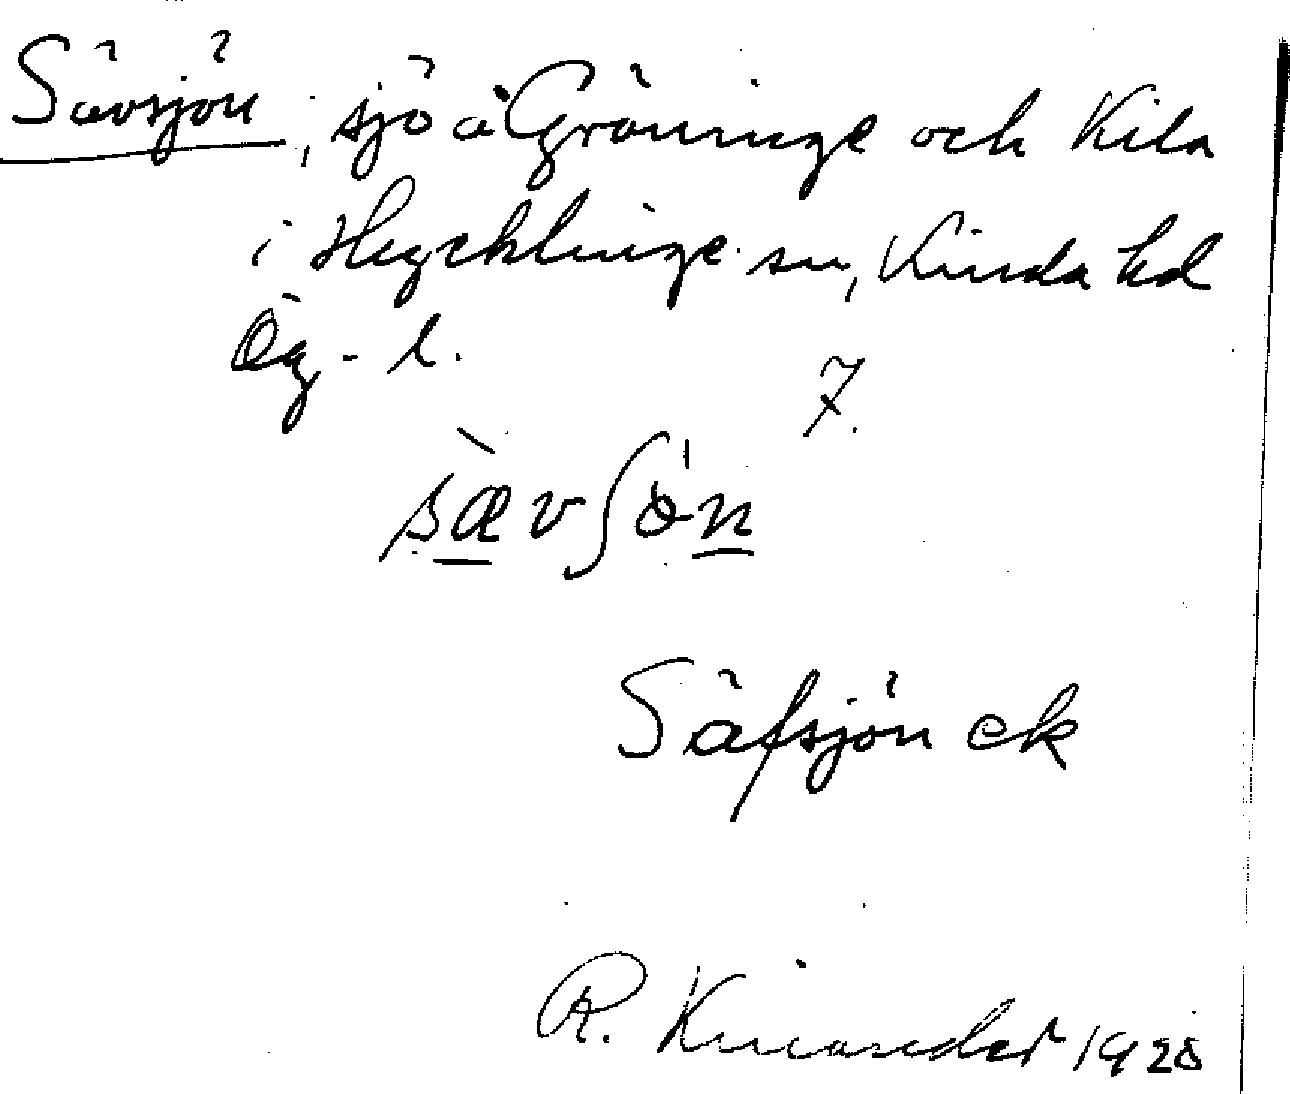 Sävsjön, sjö å Gröninge och Kila
i Hycklinge sn, Kinda hd
Ög. l.
7.
sævʃön
Säfsjön ek
R. Kinander 1928